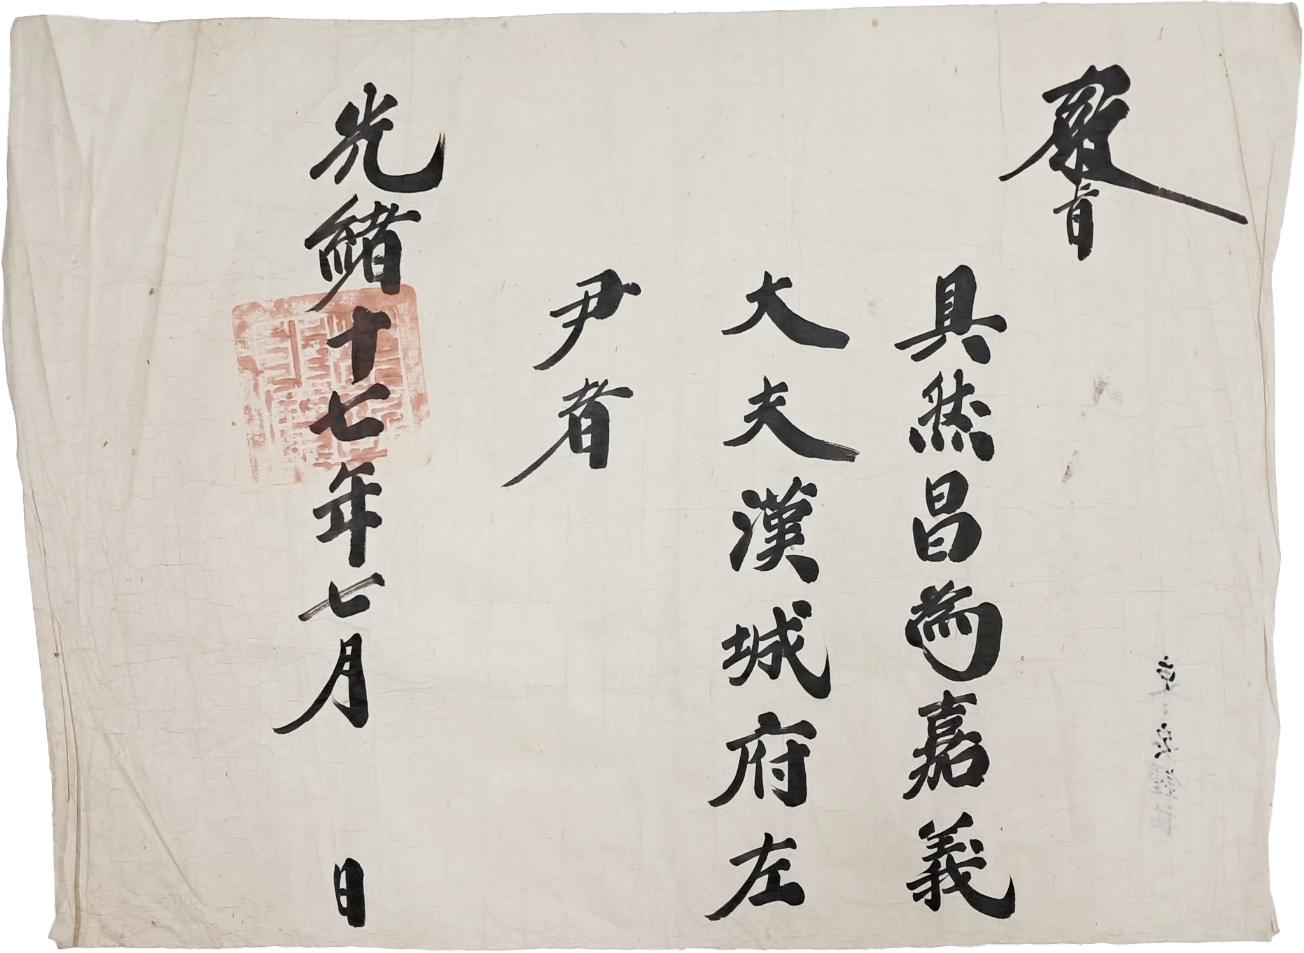 敎旨
具然昌爲嘉義
大夫漢城府左
尹者
光緖十七年七月 日